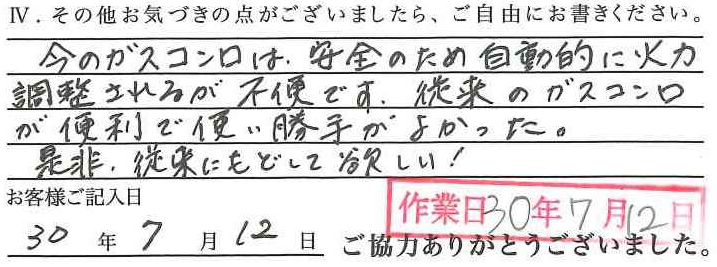 Ⅳ．その他お気づきの点がございましたら、ご自由にお書きください。
今のガスコンロは、安全のため自動的に火力
調整されるが不便です、従来のガスコンロ
が便利で使い勝手がよかった。
是非、従来にもどして欲しい！
お客様ご記入日
作業日30年7月12日
30年7月12日
ご協力ありがとうございました。